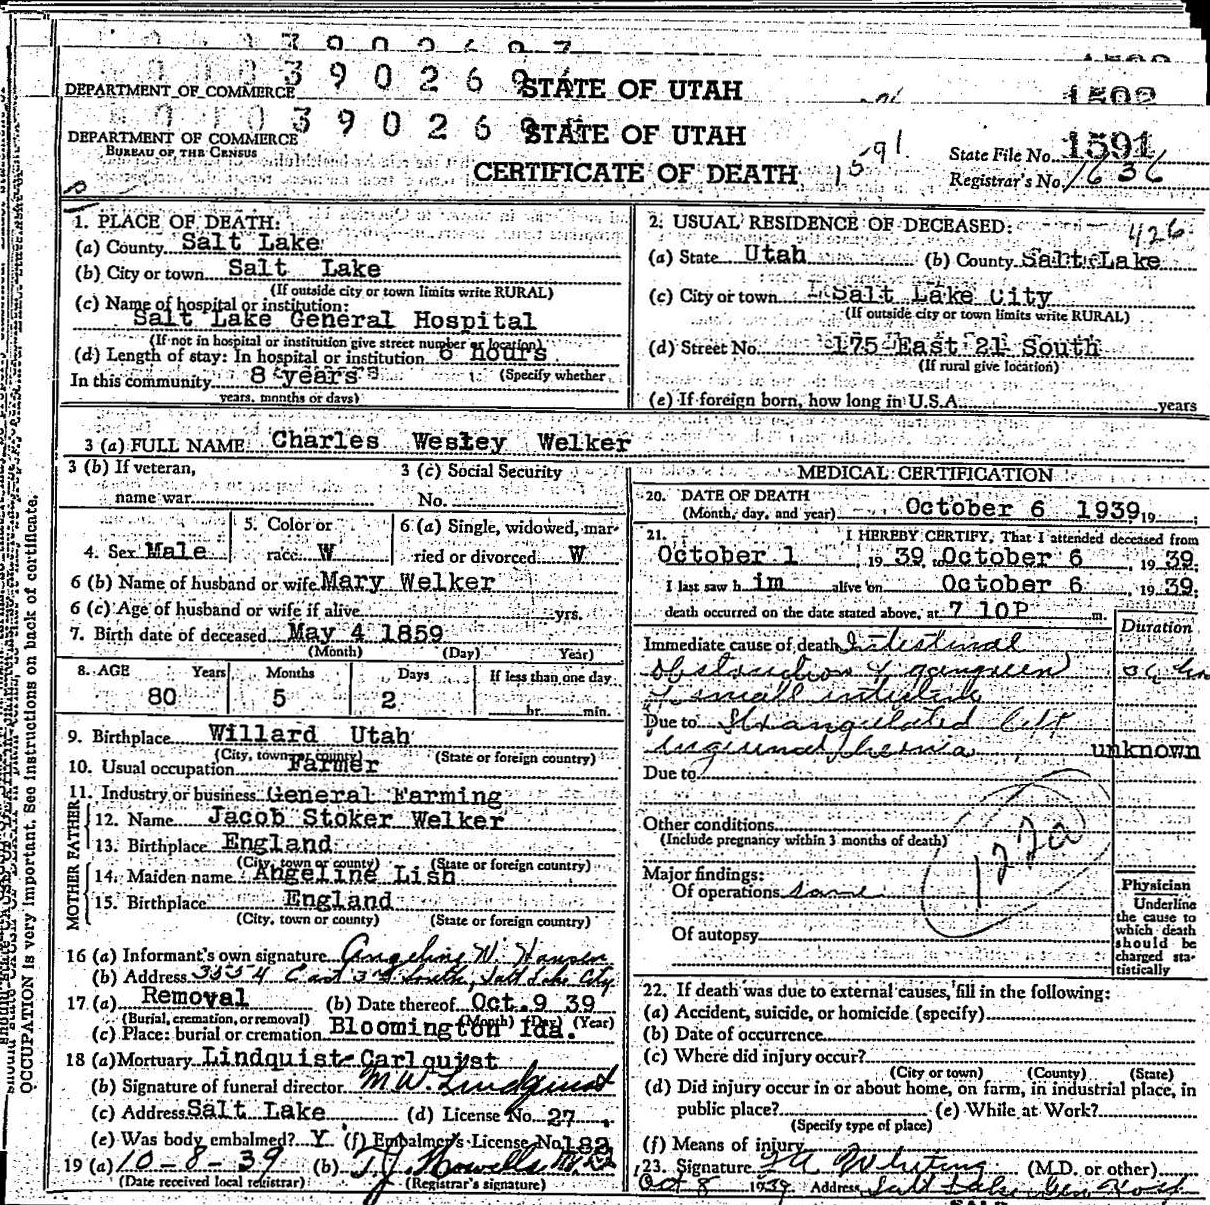 3 9 0 2 6 9
DEPARTMENT OF COMMERCE STATE OF UTAH 1592
3 9 0 2 6 9
DEPARTMENT OF COMMERCE STATE OF UTAH
BUREAU OF THE CENSUS
CERTIFICATE OF DEATH 1591
State File No. 1591
Registrar's No. 1636
1. PLACE OF DEATH:
(a) County Salt Lake
(b) City or town Salt Lake
(If outside city or town limits write RURAL)
(c) Name of hospital or institution:
Salt Lake General Hospital
(If not in hospital or institution give street number or location)
(d) Length of stay: In hospital or institution 6 hours
In this community 8 years (Specify whether
years, months or days)
2. USUAL RESIDENCE OF DECEASED: 426
(a) State Utah (b) County Salt Lake
(c) City or town Salt Lake City
(If outside city or town limits write RURAL)
(d) Street No. 175 East 21 South
(If rural give location)
(e) If foreign born, how long in U.S.A. years
3 (a) FULL NAME Charles Wesley Welker
3 (b) If veteran,
name war
3 (c) Social Security
No.
4. Sex Male
5. Color or
race W
6 (a) Single, widowed, mar-
ried or divorced W
6 (b) Name of husband or wife Mary Welker
6 (c) Age of husband or wife if alive yrs.
7. Birth date of deceased May 4 1859
(Month) (Day) Year)
8. AGE Years Months Days If less than one day
80 5 2 hr. min.
9. Birthplace Willard Utah
(City, town or county) (State or foreign country)
10. Usual occupation Farmer
11. Industry or business General Farming
FATHER
12. Name Jacob Stoker Welker
13. Birthplace England
(City, town or county) (State or foreign country)
MOTHER
14. Maiden name Angeline Lish
15. Birthplace England
(City, town or county) (State or foreign country)
16 (a) Informant's own signature Angeline W. Hansen
(b) Address 3554 East 3rd South, Salt Lake City
17. (a) Removal (b) Date thereof Oct. 9 39
(Burial, cremation, or removal) (Month) (Day) (Year)
(c) Place: burial or cremation Bloomington Ida.
18 (a) Mortuary Lindquist-Carlquist
(b) Signature of funeral director M W. Lindquist
(c) Address Salt Lake (d) License No. 27
(e) Was body embalmed? Y (f) Embalmer's License No. 182
19 (a) 10-8-39 (b) T. J. Howells
(Date received local registrar) (Registrar's signature)
MEDICAL CERTIFICATION
20. DATE OF DEATH
(Month, day, and year) October 6 1939 19 ;
21. I HEREBY CERTIFY, That I attended deceased from
October 1 , 19 39 to October 6 , 19 39;
I last saw h im alive on October 6 , 19 39;
death occurred on the date stated above, at 7 10P m.
Duration
Immediate cause of death Intestinal
obstruction & gangreen
of small intestine
Due to Strangulated left
inguinal hernia unknown
Due to
Other conditions
(Include pregnancy within 3 months of death)
122a
Major findings:
Of operations same
Of autopsy
Physician
Underline
the cause to
which death
should be
charged sta-
tistically
22. If death was due to external causes, fill in the following:
(a) Accident, suicide, or homicide (specify)
(b) Date of occurrence
(c) Where did injury occur?
(City or town) (County) (State)
(d) Did injury occur in or about home, on farm, in industrial place, in
public place? (e) While at Work?
(Specify type of place)
(f) Means of injury
23. Signature Whiting (M.D. or other)
Oct 8 1939 Address Salt Lake Gen Hosp
OCCUPATION is very important. See instructions on back of certificate.